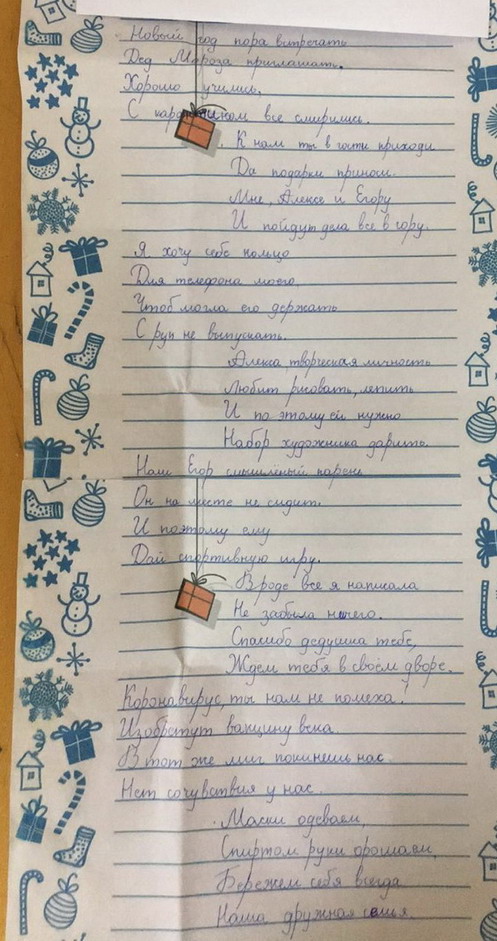 Новый год пора встречать
Дед Мороза приглашать.
Хорошо учились,
С карантином все смирились.
К нам ты в гости приходи
Да подарки приноси.
Мне, Алексе и Егору
И пойдут дела все в гору.
Я хочу себе кольцо
Для телефона моего,
Чтоб могла его держать
С рук не выпускать.
Алекса, творческая личность
Любит рисовать, лепить
И по этому ей нужно
Набор художника дарить.
Наш Егор смышлёный парень
Он на месте не сидит.
И поэтому ему
Дай спортивную игру.
Вроде все я написала
Не забыла ничего.
Спасибо дедушка тебе,
Ждем тебя в своем дворе.
Коронавирус, ты нам не помеха!
Изобретут вакцину века.
В тот же миг покинешь нас
Нет сочувствия у нас.
Маски одеваем,
Спиртом руки орошаем,
Бережем себя всегда
Наша дружная семья.